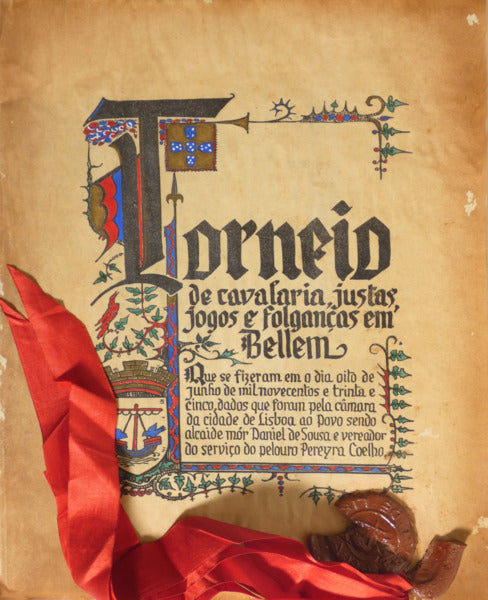 Torneio
de cavalaria, justas,
jogos e folganças em
Bellem
Que se fizeram em o dia oito de
junho de mil novecentos e trinta e
cinco, dados que foram pela câmara
da cidade de Lisboa ao Povo sendo
alcaide mór Daniel de Sousa e vereador
do serviço do pelouro Pereyra Coelho,